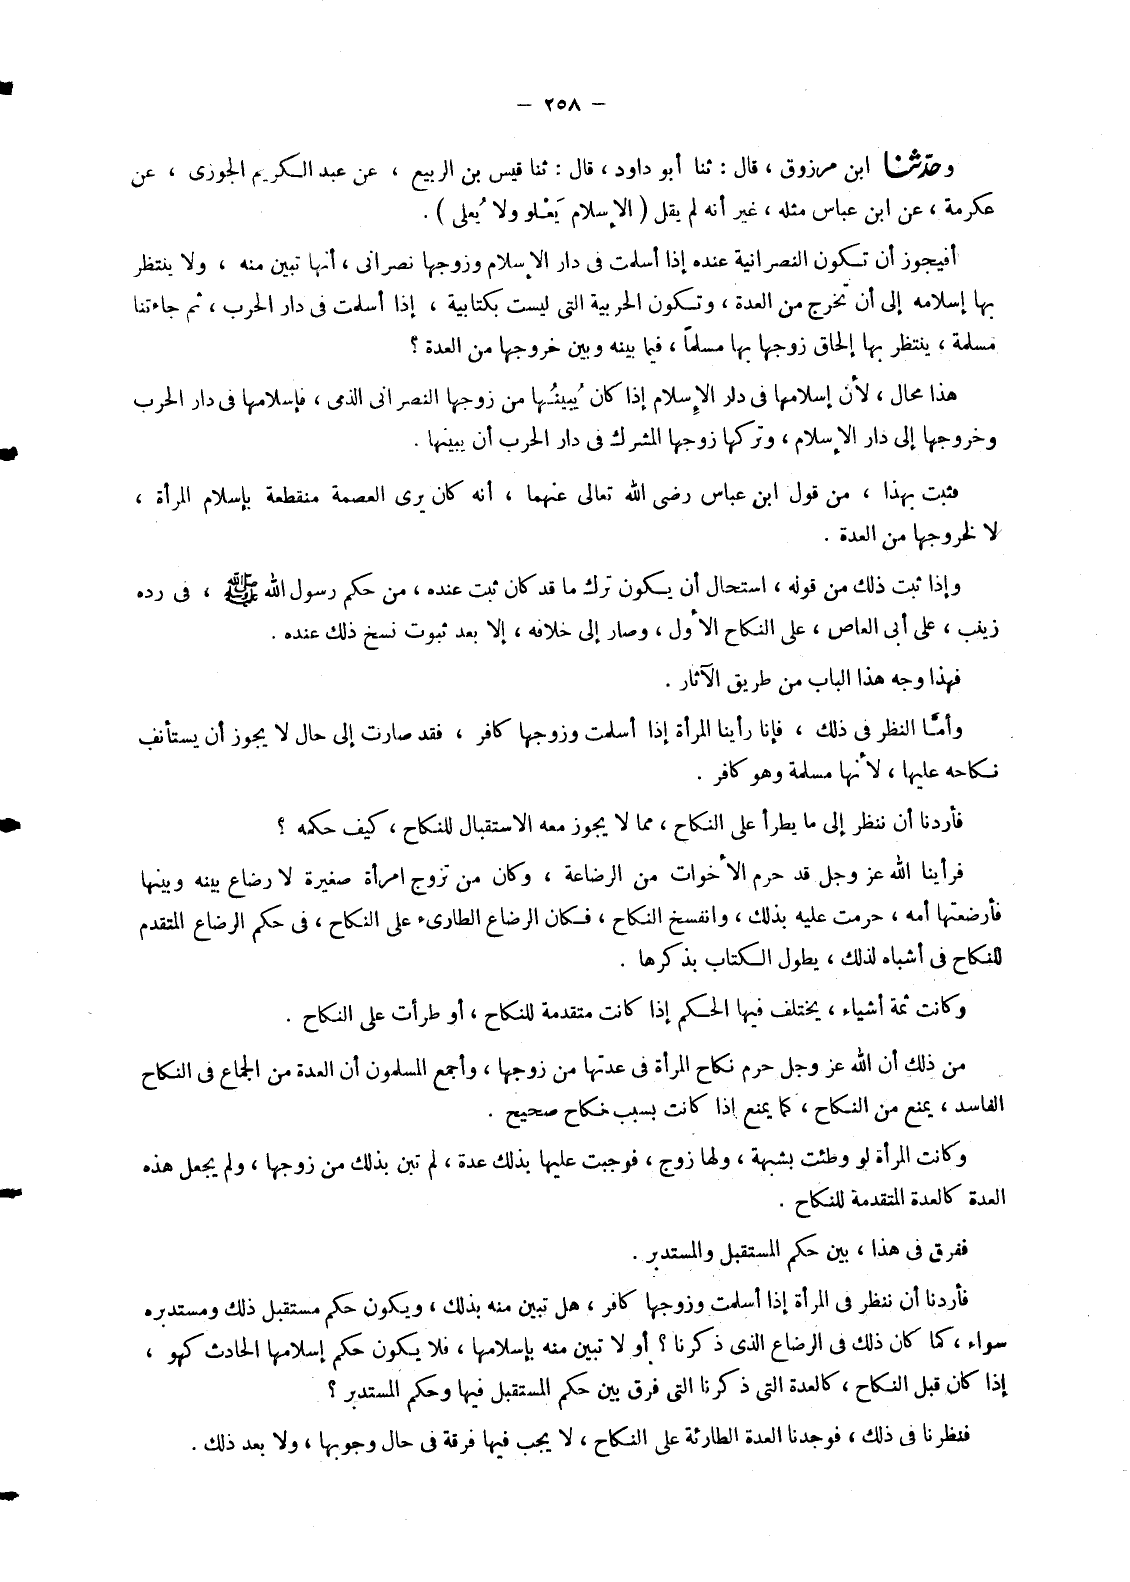 — ٢٥٨ —
وحدّثنا ابن مرزوق ، قال : ثنا أبو داود ، قال : ثنا قيس بن الربيع ، عن عبد الكريم الجوزى ، عن
عكرمة ، عن ابن عباس مثله ، غير أنه لم يقل ( الإسلام يَعْلو ولا يُعلى ) .
أفيجوز أن تكون النصرانية عنده إذا أسلمت فى دار الإسلام وزوجها نصرانى ، أنها تبين منه ، ولا ينتظر
بها إسلامه إلى أن تخرج من العدة ، وتكون الحربية التى ليست بكتابية ، إذا أسلمت فى دار الحرب ، ثم جاءتنا
مسلمة ، ينتظر بها إلحاق زوجها بها مسلماً ، فيما بينه وبين خروجها من العدة ؟
هذا محال ، لأن إسلامها فى دار الإسلام إذا كان يُبينُها من زوجها النصرانى الذمى ، فإسلامها فى دار الحرب
وخروجها إلى دار الإسلام ، وتركها زوجها المشرك فى دار الحرب أن يبينها .
فثبت بهذا ، من قول ابن عباس رضى الله تعالى عنهما ، أنه كان يرى العصمة منقطعة بإسلام المرأة ،
لا لخروجها من العدة .
وإذا ثبت ذلك من قوله ، استحال أن يكون ترك ما قد كان ثبت عنده ، من حكم رسول الله ﷺ ، فى رده
زينب ، على أبى العاص ، على النكاح الأول ، وصار إلى خلافه ، إلا بعد ثبوت نسخ ذلك عنده .
فهذا وجه هذا الباب من طريق الآثار .
وأمَّا النظر فى ذلك ، فإنا رأينا المرأة إذا أسلمت وزوجها كافر ، فقد صارت إلى حال لا يجوز أن يستأنف
نكاحه عليها ، لأنها مسلمة وهو كافر .
فأردنا أن ننظر إلى ما يطرأ على النكاح ، مما لا يجوز معه الاستقبال للنكاح ، كيف حكمه ؟
فرأينا الله عز وجل قد حرم الأخوات من الرضاعة ، وكان من تزوج امرأة صغيرة لا رضاع بينه وبينها
فأرضعتها أمه ، حرمت عليه بذلك ، وانفسخ النكاح ، فكان الرضاع الطارىء على النكاح ، فى حكم الرضاع المتقدم
للنكاح فى أشباه لذلك ، يطول الكتاب بذكرها .
وكانت ثمة أشياء ، يختلف فيها الحكم إذا كانت متقدمة للنكاح ، أو طرأت على النكاح .
من ذلك أن الله عز وجل حرم نكاح المرأة فى عدتها من زوجها ، وأجمع المسلمون أن العدة من الجماع فى النكاح
الفاسد ، يمنع من النكاح ، كما يمنع إذا كانت بسبب نكاح صحيح .
وكانت المرأة لو وطئت بشبهة ، ولها زوج ، فوجبت عليها بذلك عدة ، لم تبن بذلك من زوجها ، ولم يجعل هذه
العدة كالعدة المتقدمة للنكاح .
ففرق فى هذا ، بين حكم المستقبل والمستدبر .
فأردنا أن ننظر فى المرأة إذا أسلمت وزوجها كافر ، هل تبين منه بذلك ، ويكون حكم مستقبل ذلك ومستدبره
سواء ، كما كان ذلك فى الرضاع الذى ذكرنا ؟ أو لا تبين منه بإسلامها ، فلا يكون حكم إسلامها الحادث كهو ،
إذا كان قبل النكاح ، كالعدة التى ذكرنا التى فرق بين حكم المستقبل فيها وحكم المستدبر ؟
فنظرنا فى ذلك ، فوجدنا العدة الطارئة على النكاح ، لا يجب فيها فرقة فى حال وجوبها ، ولا بعد ذلك .